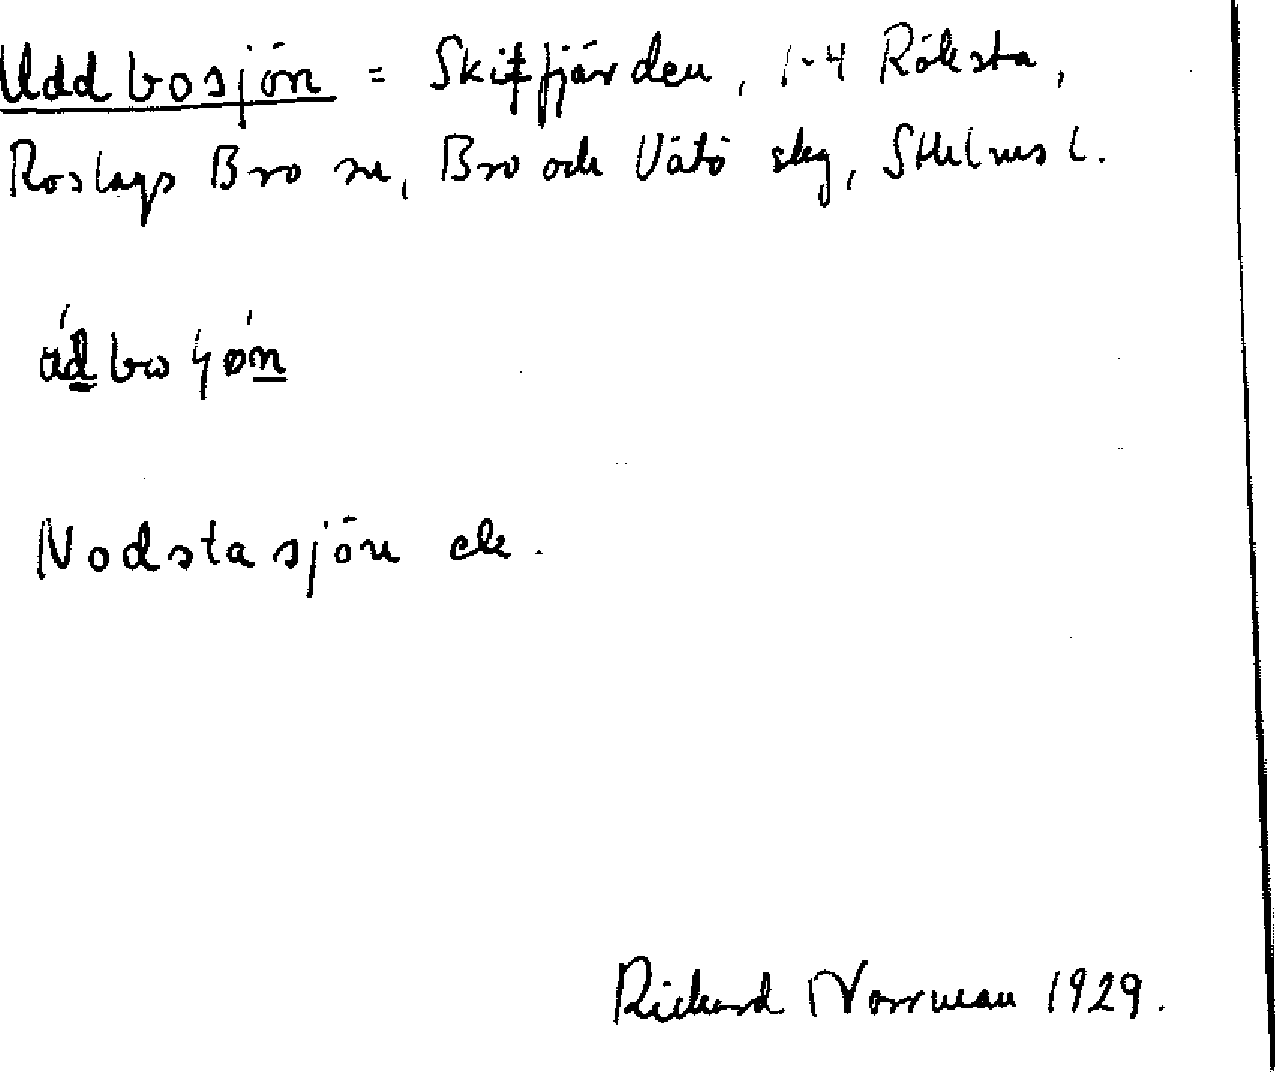 Uddbosjön = Skitfjärden, 1-4 Röksta,
Roslags Bro sn, Bro och Vätö skg, Sthlms l.
Nodstasjön ek.
Rickard Norrman 1929.